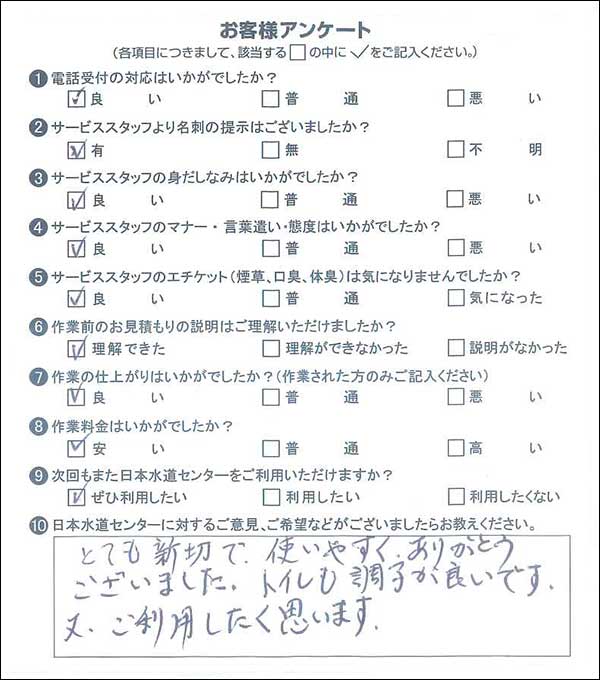 お客様アンケート
(各項目につきまして、該当する□の中に✓をご記入ください。)
❶電話受付の対応はいかがでしたか?
☑良い □普通 □悪い
❷サービススタッフより名刺の提示はございましたか?
☑有 □無 □不明
❸サービススタッフの身だしなみはいかがでしたか?
☑良い □普通 □悪い
❹サービススタッフのマナー・言葉遣い・態度はいかがでしたか?
☑良い □普通 □悪い
❺サービススタッフのエチケット(煙草、口臭、体臭)は気になりませんでしたか?
☑良い □普通 □気になった
❻作業前のお見積もりの説明はご理解いただけましたか?
☑理解できた □理解ができなかった □説明がなかった
❼作業の仕上がりはいかがでしたか?(作業された方のみご記入ください)
☑良い □普通 □悪い
❽作業料金はいかがでしたか?
☑安い □普通 □高い
❾次回もまた日本水道センターをご利用いただけますか?
☑ぜひ利用したい □利用したい □利用したくない
❿日本水道センターに対するご意見、ご希望などがございましたらお教えください。
とても新切で、使いやすく、ありがとう
ございました。トイレも調子が良いです。
又、ご利用したく思います。